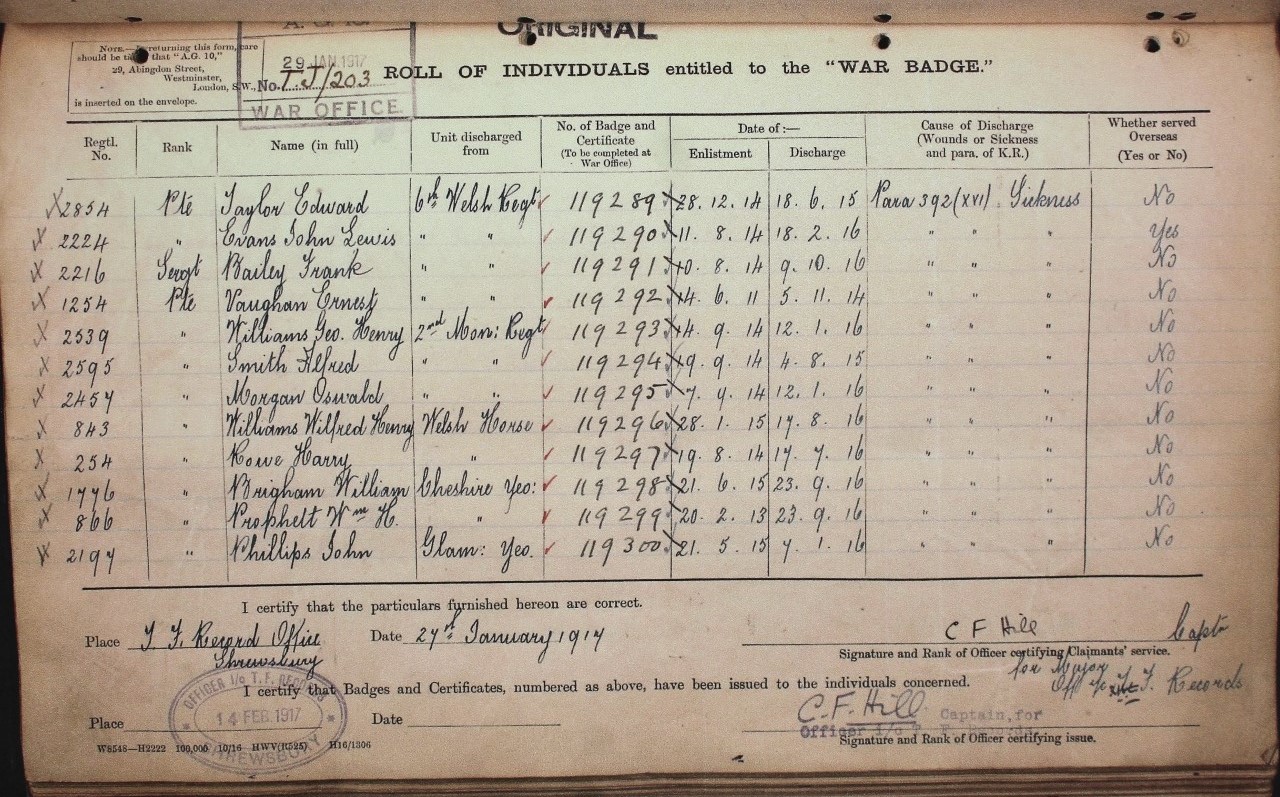 ORIGINAL
NOTE.—In returning this form, care
should be taken that "A.G. 10,"
29, Abingdon Street,
Westminster,
London, S.W.,
is inserted on the envelope.
A.G. 10.
29 JAN. 1917
No. T.J/203
WAR OFFICE
ROLL OF INDIVIDUALS entitled to the "WAR BADGE."
Regtl. No. Rank Name (in full) Unit discharged from No. of Badge and Certificate (To be completed at War Office) Date of :— Enlistment Discharge Cause of Discharge (Wounds or Sickness and para. of K.R.) Whether served Overseas (Yes or No)
2854 Pte Taylor Edward 6th Welsh Regt 119289 28. 12. 14 18. 6. 15 Para 392(XVI) Sickness No
2224 " Evans John Lewis " " 119290 11. 8. 14 18. 2. 16 " " " Yes
2216 Sergt Bailey Frank " " 119291 10. 8. 14 9. 10. 16 " " " No
1254 Pte Vaughan Ernest " " 119292 14. 6. 11 5. 11. 14 " " " No
2539 " Williams Geo. Henry 2nd Mon: Regt 119293 14. 9. 14 12. 1. 16 " " " No
2595 " Smith Alfred " " 119294 19. 9. 14 4. 8. 15 " " " No
2457 " Morgan Oswald " " 119295 7. 9. 14 12. 1. 16 " " " No
843 " Williams Wilfred Henry Welsh Horse 119296 28. 1. 15 17. 8. 16 " " " No
254 " Rowe Harry " 119297 19. 8. 14 17. 7. 16 " " " No
1776 " Brigham William Cheshire Yeo: 119298 21. 6. 15 23. 9. 16 " " " No
866 " Prophett Wm H. " 119299 20. 2. 13 23. 9. 16 " " " No
2197 " Phillips John Glam: Yeo. 119300 21. 5. 15 7. 1. 16 " " " No
I certify that the particulars furnished hereon are correct.
Place T. F. Record Office Shrewsbury Date 27th January 1917 C F Hill Capt
Signature and Rank of Officer certifying Claimants' service.
for Major
Off i/c T. F. Records
I certify that Badges and Certificates, numbered as above, have been issued to the individuals concerned.
OFFICER I/c T. F. RECORDS
14 FEB. 1917
SHREWSBURY
Place Date C. F. Hill Captain, for
Officer i/c T. F. Records
Signature and Rank of Officer certifying issue.
W8548—H2222 100,000 10/16 HWV(R525) H16/1306